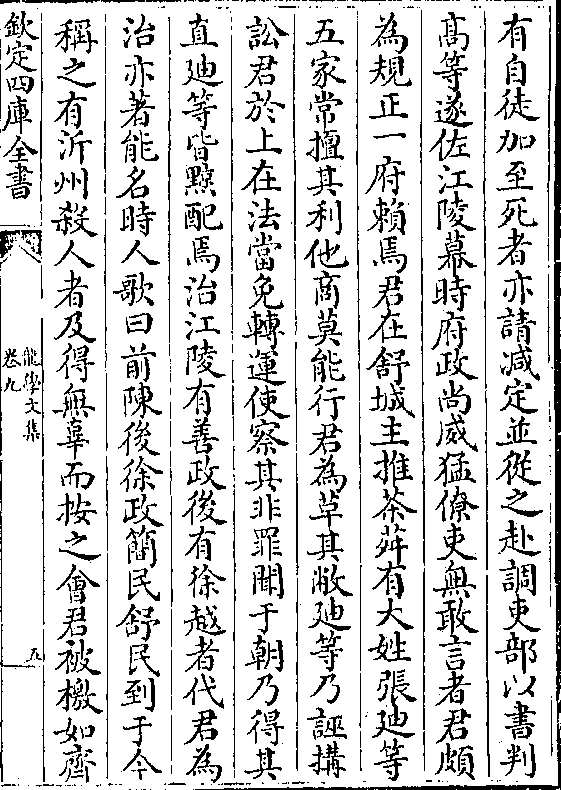 有自徒加至死者亦請减定並從之赴調吏部以書判
髙等遂佐江陵幕時府政尚威猛僚吏無敢言者君頗
為規正一府賴焉君在舒城主推茶荈有大姓張廸等
五家常擅其利他商莫能行君為草其敝廸等乃誣搆
訟君於上在法當免轉運使察其非罪聞于朝乃得其
直廸等皆黥配焉治江陵有善政後有徐越者代君為
治亦著能名時人歌曰前陳後徐政簡民舒民到于今
稱之有沂州殺人者及得無辜而按之會君被檄如齊
欽定四庫全書
龍學文集
卷九
五